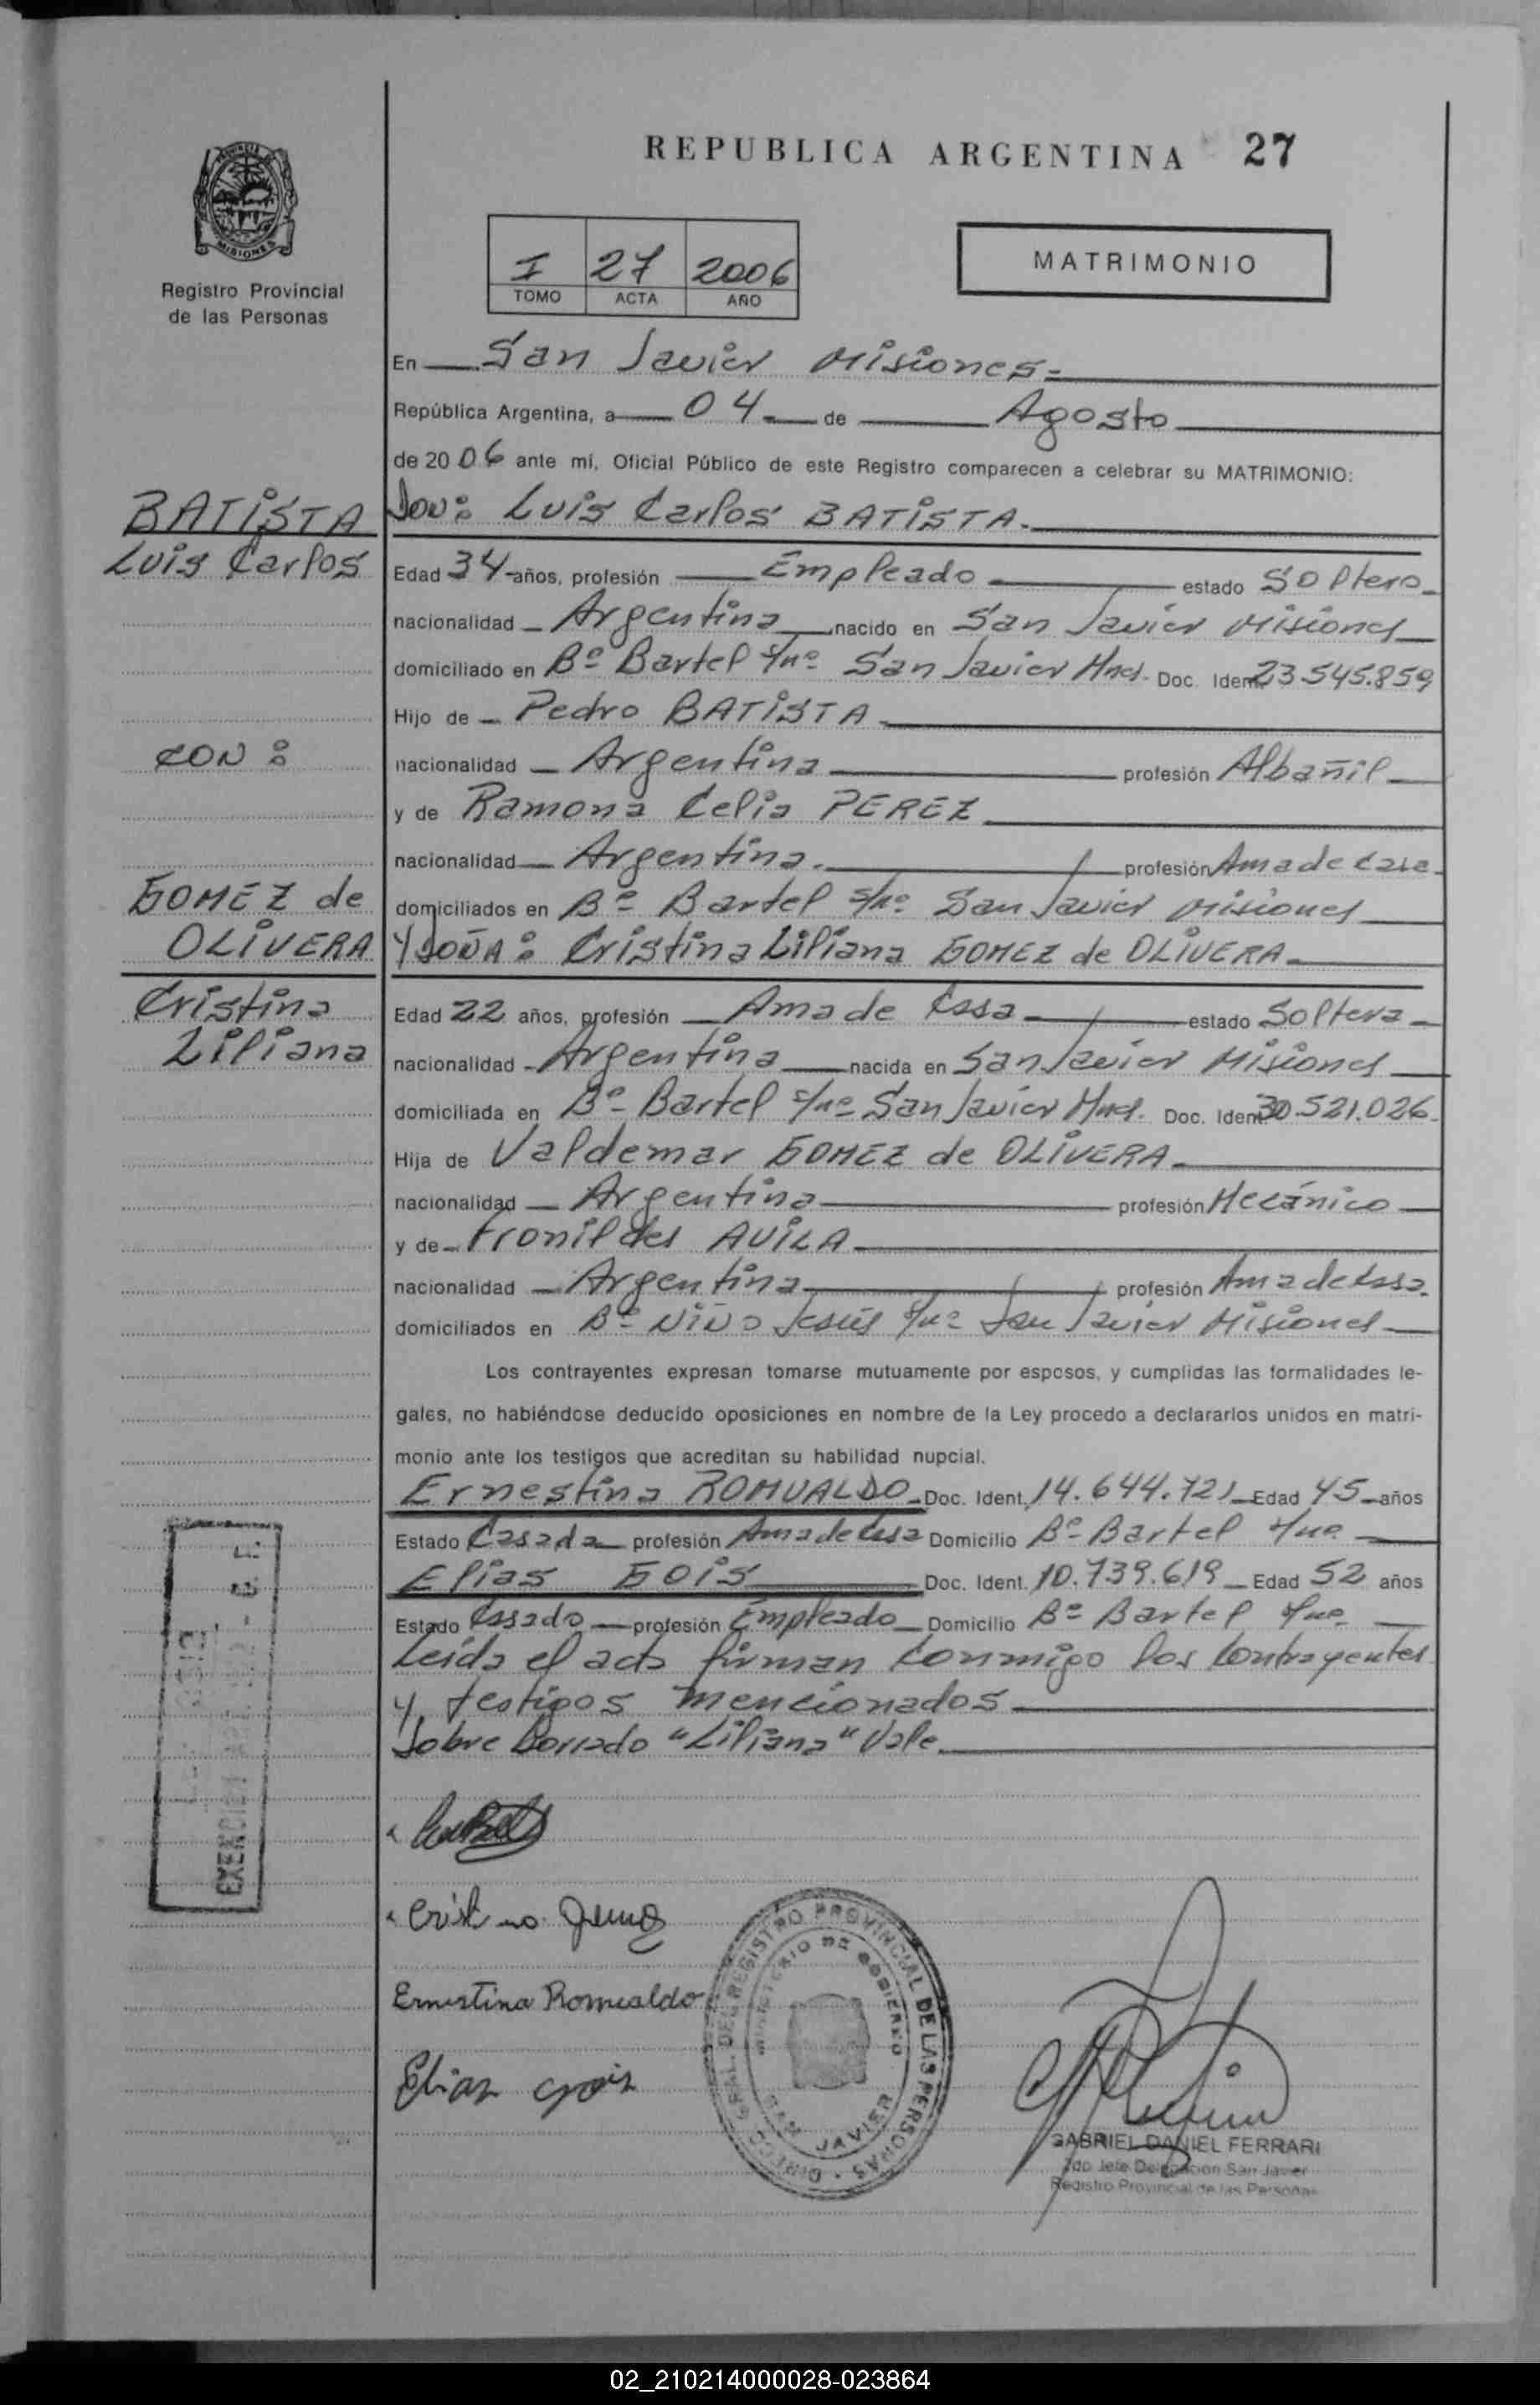 REPUBLICA ARGENTINA 27
PROVINCIA DE
MISIONES
Registro Provincial
de las Personas
I 27 2006
TOMO ACTA AÑO
MATRIMONIO
En San Javier Misiones=
República Argentina, a 04 de Agosto
de 2006 ante mí, Oficial Público de este Registro comparecen a celebrar su MATRIMONIO:
BATISTA
Luis Carlos
CON:
GOMEZ de
OLIVERA
Cristina
Liliana
Don: Luis Carlos BATISTA.
Edad 34 años, profesión Empleado estado Soltero
nacionalidad Argentina nacido en San Javier Misiones
domiciliado en Bº Bartel s/nº San Javier Mnes. Doc. Ident. 23.545.859
Hijo de Pedro BATISTA
nacionalidad Argentina profesión Albañil
y de Ramona Celia PEREZ
nacionalidad Argentina. profesión Ama de Casa
domiciliados en Bº Bartel s/nº San Javier Misiones
Y DOÑA: Cristina Liliana GOMEZ de OLIVERA
Edad 22 años, profesión Ama de Casa estado Soltera
nacionalidad Argentina nacida en San Javier Misiones
domiciliada en Bº Bartel s/nº San Javier Mnes. Doc. Ident. 30.521.026
Hija de Valdemar GOMEZ de OLIVERA
nacionalidad Argentina profesión Mecánico
y de Fronildes AVILA
nacionalidad Argentina profesión Ama de Casa.
domiciliados en Bº Niño Jesús s/nº San Javier Misiones
Los contrayentes expresan tomarse mutuamente por esposos, y cumplidas las formalidades le-
gales, no habiéndose deducido oposiciones en nombre de la Ley procedo a declararlos unidos en matri-
monio ante los testigos que acreditan su habilidad nupcial.
Ernestina ROMUALDO Doc. Ident. 14.644.721 Edad 45 años
Estado Casada profesión Ama de Casa Domicilio Bº Bartel s/nº
Elias GOIS Doc. Ident. 10.739.619 Edad 52 años
Estado Casado profesión Empleado Domicilio Bº Bartel s/nº
Leída el acta firman conmigo los contrayentes
y testigos mencionados
Sobre borrado "Liliana" Vale
EXENCION
Ernestina Romualdo
Elias Gois
DIRECC. GRAL. DEL REGISTRO PROVINCIAL DE LAS PERSONAS
MINISTERIO DE GOBIERNO
SAN JAVIER
GABRIEL DANIEL FERRARI
2do Jefe Delegación San Javier
Registro Provincial de las Personas
02_210214000028-023864